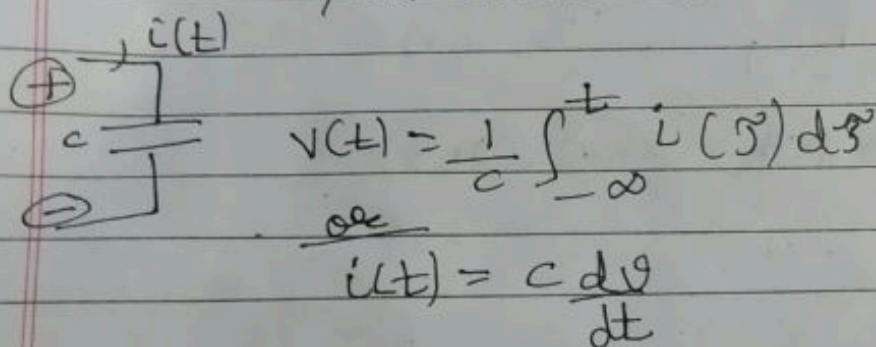 i(t)
+
c
v(t) = 1/c ∫_{-∞}^{t} i(τ) dτ
-
or
i(t) = c dv/dt